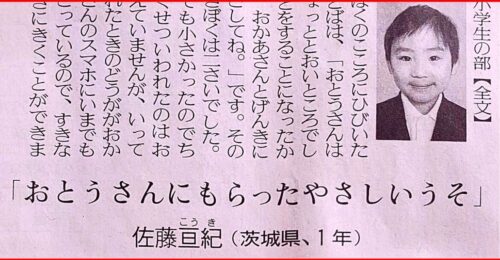 小学生の部【全文】
ぼくのこころにひびいた
とばは、「おとうさんは
ょっととおいところでし
とをすることになったか
おかあさんとげんきに
してね。」です。その
ぼくは二さいでした。
ても小さかったのでち
くせついわれたのはお
えていませんが、いって
れたときのどうががおか
さんのスマホにいまでも
こっているので、すきな
きにきくことができま
「おとうさんにもらったやさしいうそ」
佐藤亘紀(茨城県、1年)
こうき